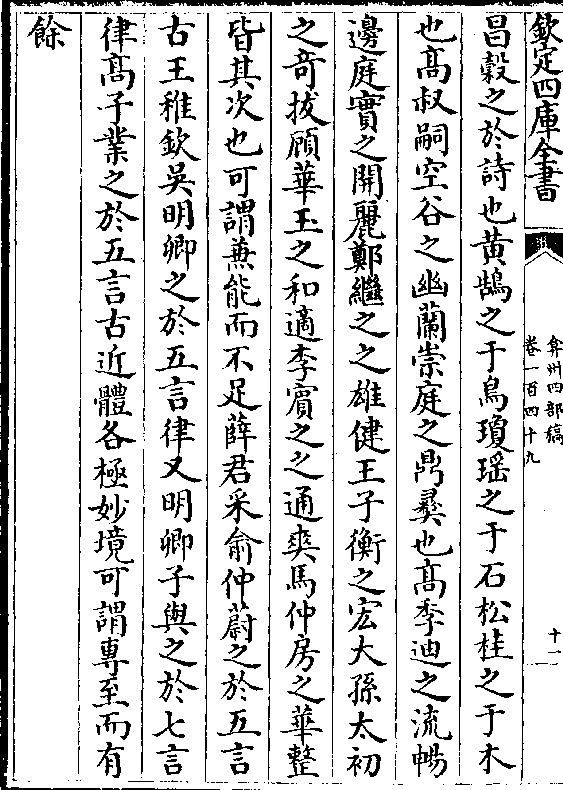 欽定四庫全書
弇州四部稿
卷一百四十九
十一
昌穀之於詩也黄鵠之于鳥瓊瑶之于石松桂之于木
也髙叔嗣空谷之幽蘭崇庭之鼎彛也髙季迪之流暢
邊庭實之開麗鄭繼之之雄健王子衡之宏大孫太初
之竒拔顧華玉之和適李賔之之通爽馬仲房之華整
皆其次也可謂兼能而不足薛君采俞仲蔚之於五言
古王稚欽吳明卿之於五言律又明卿子與之於七言
律髙子業之於五言古近體各極妙境可謂專至而有
餘